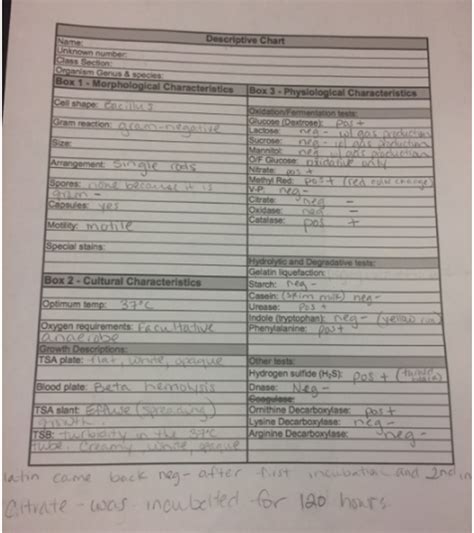 Descriptive Chart
Name:
Unknown number:
Class Section:
Organism Genus & species:
Box 1 - Morphological Characteristics
Cell shape: Bacillus
Gram reaction: gram-negative
Size:
Arrangement: Single rods
Spores: none because it is
gram -
Capsules: yes
Motility: motile
Special stains:
Box 2 - Cultural Characteristics
Optimum temp: 37°C
Oxygen requirements: Facultative
anaerobe
Growth Descriptions:
TSA plate: flat, white, opaque
Blood plate: Beta hemolysis
TSA slant: Effuse (spreading)
growth.
TSB: turbidity in the 37°C
tube. Creamy, white, opaque
Box 3 - Physiological Characteristics
Oxidation/Fermentation tests:
Glucose (Dextrose): pos +
Lactose: neg - w/ gas production
Sucrose: neg - w/ gas production
Mannitol: neg - w/ gas production
O/F Glucose: oxidative only
Nitrate: pos +
Methyl Red: pos + (red color change)
V-P: neg -
Citrate: neg -
Oxidase: neg -
Catalase: pos +
Hydrolytic and Degradative tests:
Gelatin liquefaction:
Starch: neg -
Casein: (skim milk) neg -
Urease: pos +
Indole (tryptophan): neg -
Phenylalanine: pos +
Other tests:
Hydrogen sulfide (H₂S): pos + (turned
Dnase: Neg -
Coagulase:
Ornithine Decarboxylase: pos +
Lysine Decarboxylase: neg -
Arginine Decarboxylase: neg -
latin came back neg- after first incubation and 2nd in
Citrate - was incubated for 120 hours.